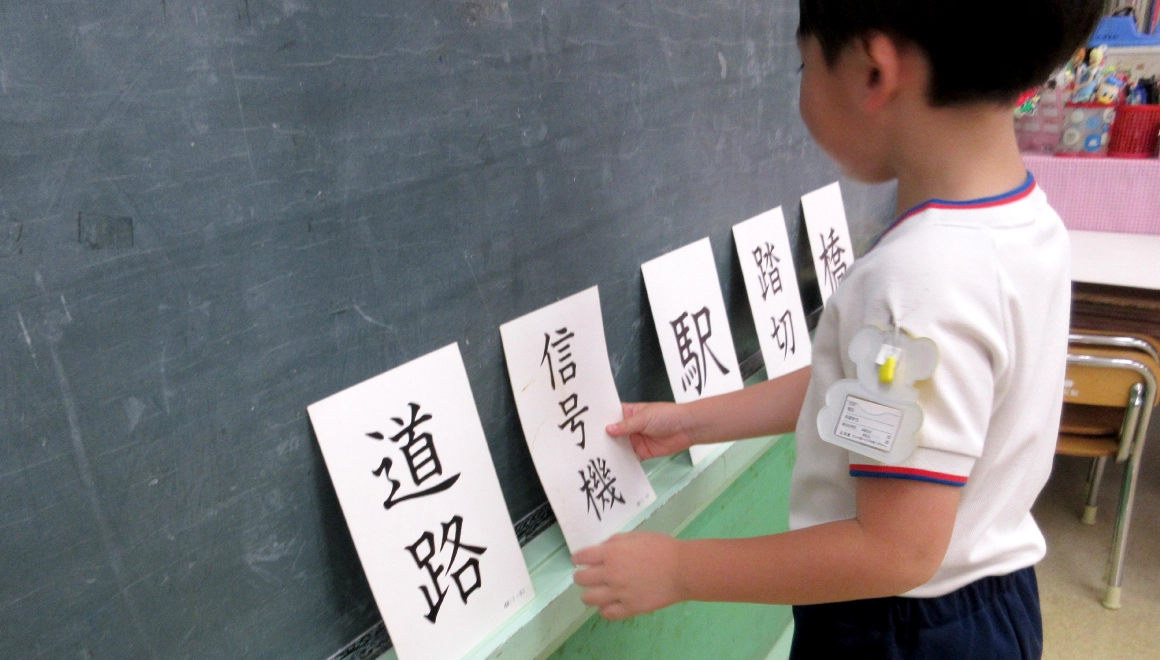 道路
信号機
駅
踏切
橋